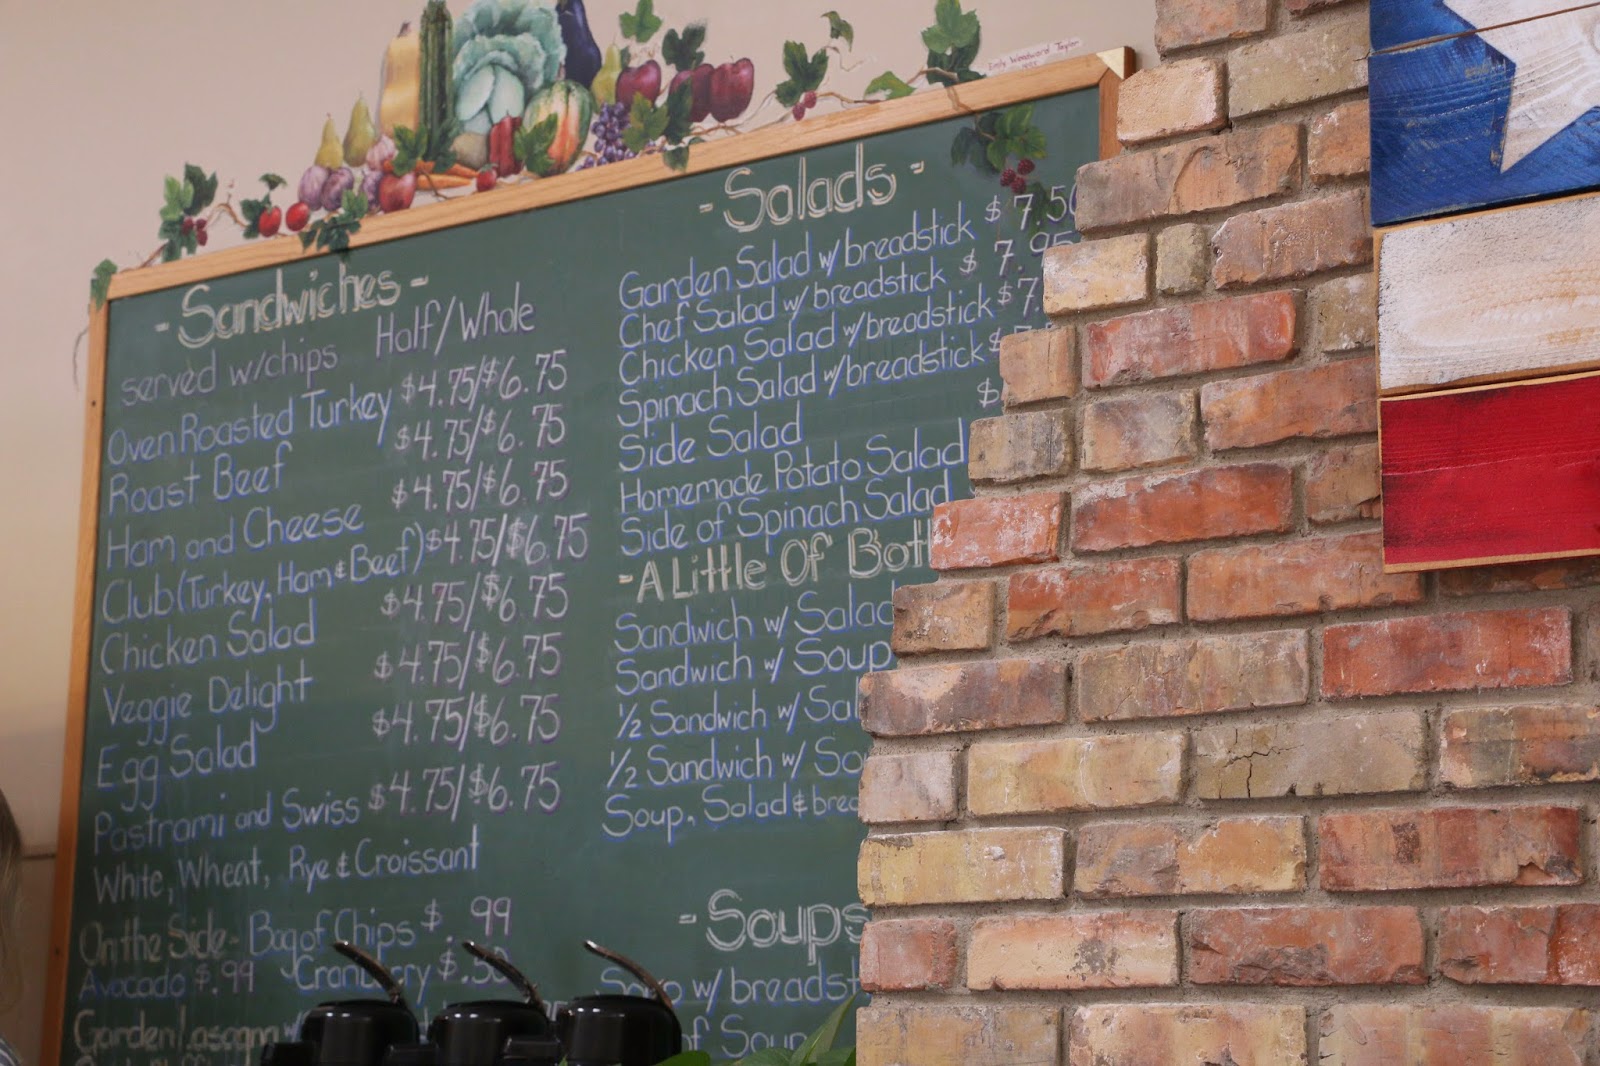 Emily Woodward Taylor
- Sandwiches -
served w/chips Half/Whole
Oven Roasted Turkey $4.75/$6.75
Roast Beef $4.75/$6.75
Ham and Cheese $4.75/$6.75
Club (Turkey, Ham & Beef) $4.75/$6.75
Chicken Salad $4.75/$6.75
Veggie Delight $4.75/$6.75
Egg Salad $4.75/$6.75
Pastrami and Swiss $4.75/$6.75
White, Wheat, Rye & Croissant
On the Side - Bag of Chips $.99
Avocado $.99 Cranberry $.50
Garden Lasagna w/
- Salads -
Garden Salad w/breadstick $7.50
Chef Salad w/breadstick $7.95
Chicken Salad w/breadstick $7.
Spinach Salad w/breadstick $
Side Salad $
Homemade Potato Salad
Side of Spinach Salad
- A Little Of Bot
Sandwich w/ Salad
Sandwich w/ Soup
1/2 Sandwich w/ Sal
1/2 Sandwich w/ So
Soup, Salad & brea
- Soups
Soup w/ breadst
of Soup